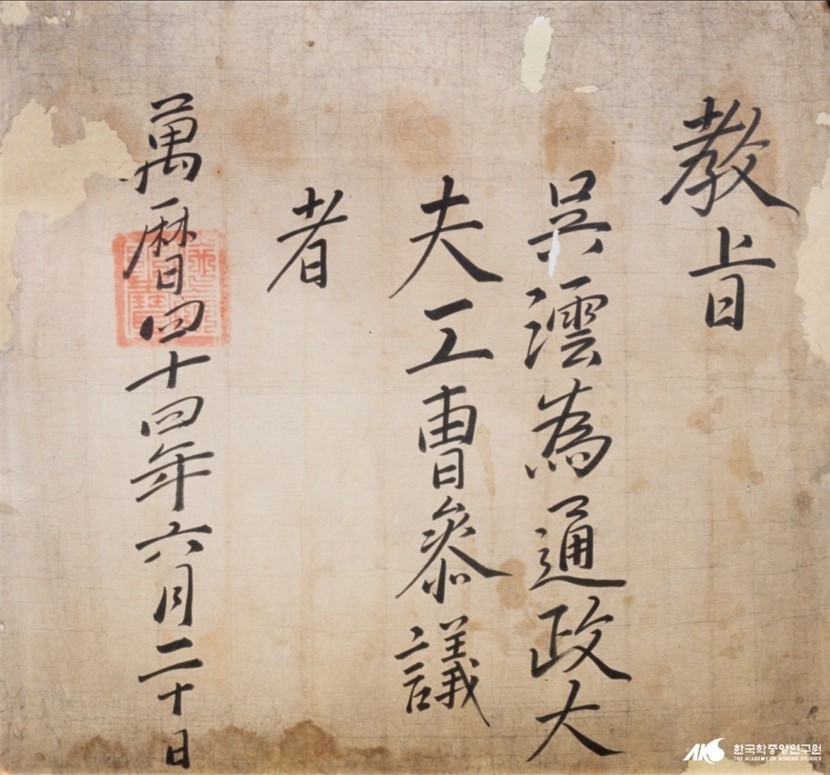 教旨
吳澐為通政大
夫工曹參議
者
萬曆四十四年六月二十日
AKS 한국학중앙연구원
THE ACADEMY OF KOREAN STUDIES